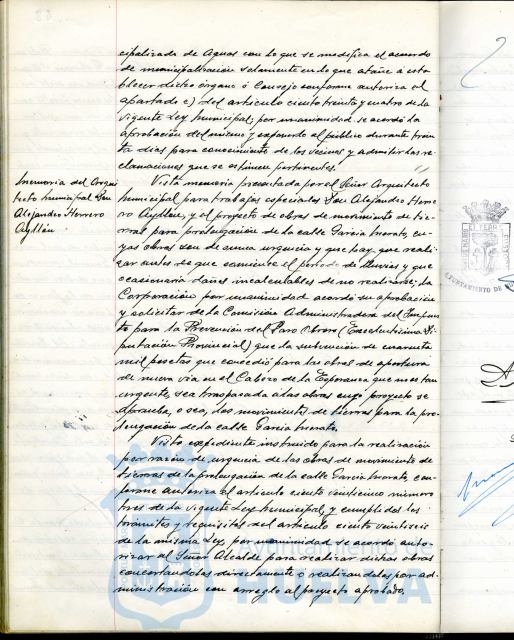 cipalizada de Aguas con lo que se modifica el acuerdo
de municipalización solamente en lo que atañe á esta
blecer dicho órgano ó Consejo conforme autoriza el
apartado c) del articulo ciento treinta y cuatro de la
vigente Ley municipal; por unanimidad se acordó la
aprobación del mismo y exponerlo al público durante trein
ta dias para conocimiento de los vecinos y admitir las re-
clamaciones que se estimen pertinentes.
Memoria del Arqui
tecto municipal Don
Alejandro Herrero
Ayllón.
Vista memoria presentada por el Señor Arquitecto
municipal para trabajos especiales Don Alejandro Herre
ro Ayllón, y el proyecto de obras de movimiento de tie-
rras para prolongación de la calle Garcia Morato, cu-
yas obras son de suma urgencia y que hay que reali-
zar antes de que comience el periodo de lluvias y que
ocasionaria daños incalculables de no realizarse; la
Corporación por unanimidad acordó su aprobación
y solicitar de la Comisión Administradora del Impues
to para la Prevención del Paro Obrero (Excelentisima Di
putación Provincial) que la subvención de cuarenta
mil pesetas que concedió para las obras de apertura
de nueva via en el Cabezo de la Esperanza que no es tan
urgente, sea traspasada á las obras cuyo proyecto se
aprueba, o sea, los movimientos de tierras para la pro-
longación de la calle Garcia Morato.
Visto expediente instruido para la realización
por razón de urgencia de las obras de movimiento de
tierras de la prolongación de la calle Garcia Morato, con-
forme autoriza el articulo ciento veinticinco número
tres de la vigente Ley municipal y cumplidos los
trámites y requisitos del articulo ciento veintiseis
de la misma Ley, por unanimidad se acordó auto-
rizar al Señor Alcalde para realizar dichas obras
concertandolas directamente o realizandolas por ad-
ministración con arreglo al proyecto aprobado.
AYUNTAMIENTO DE
Ayuntamiento de
HUELVA